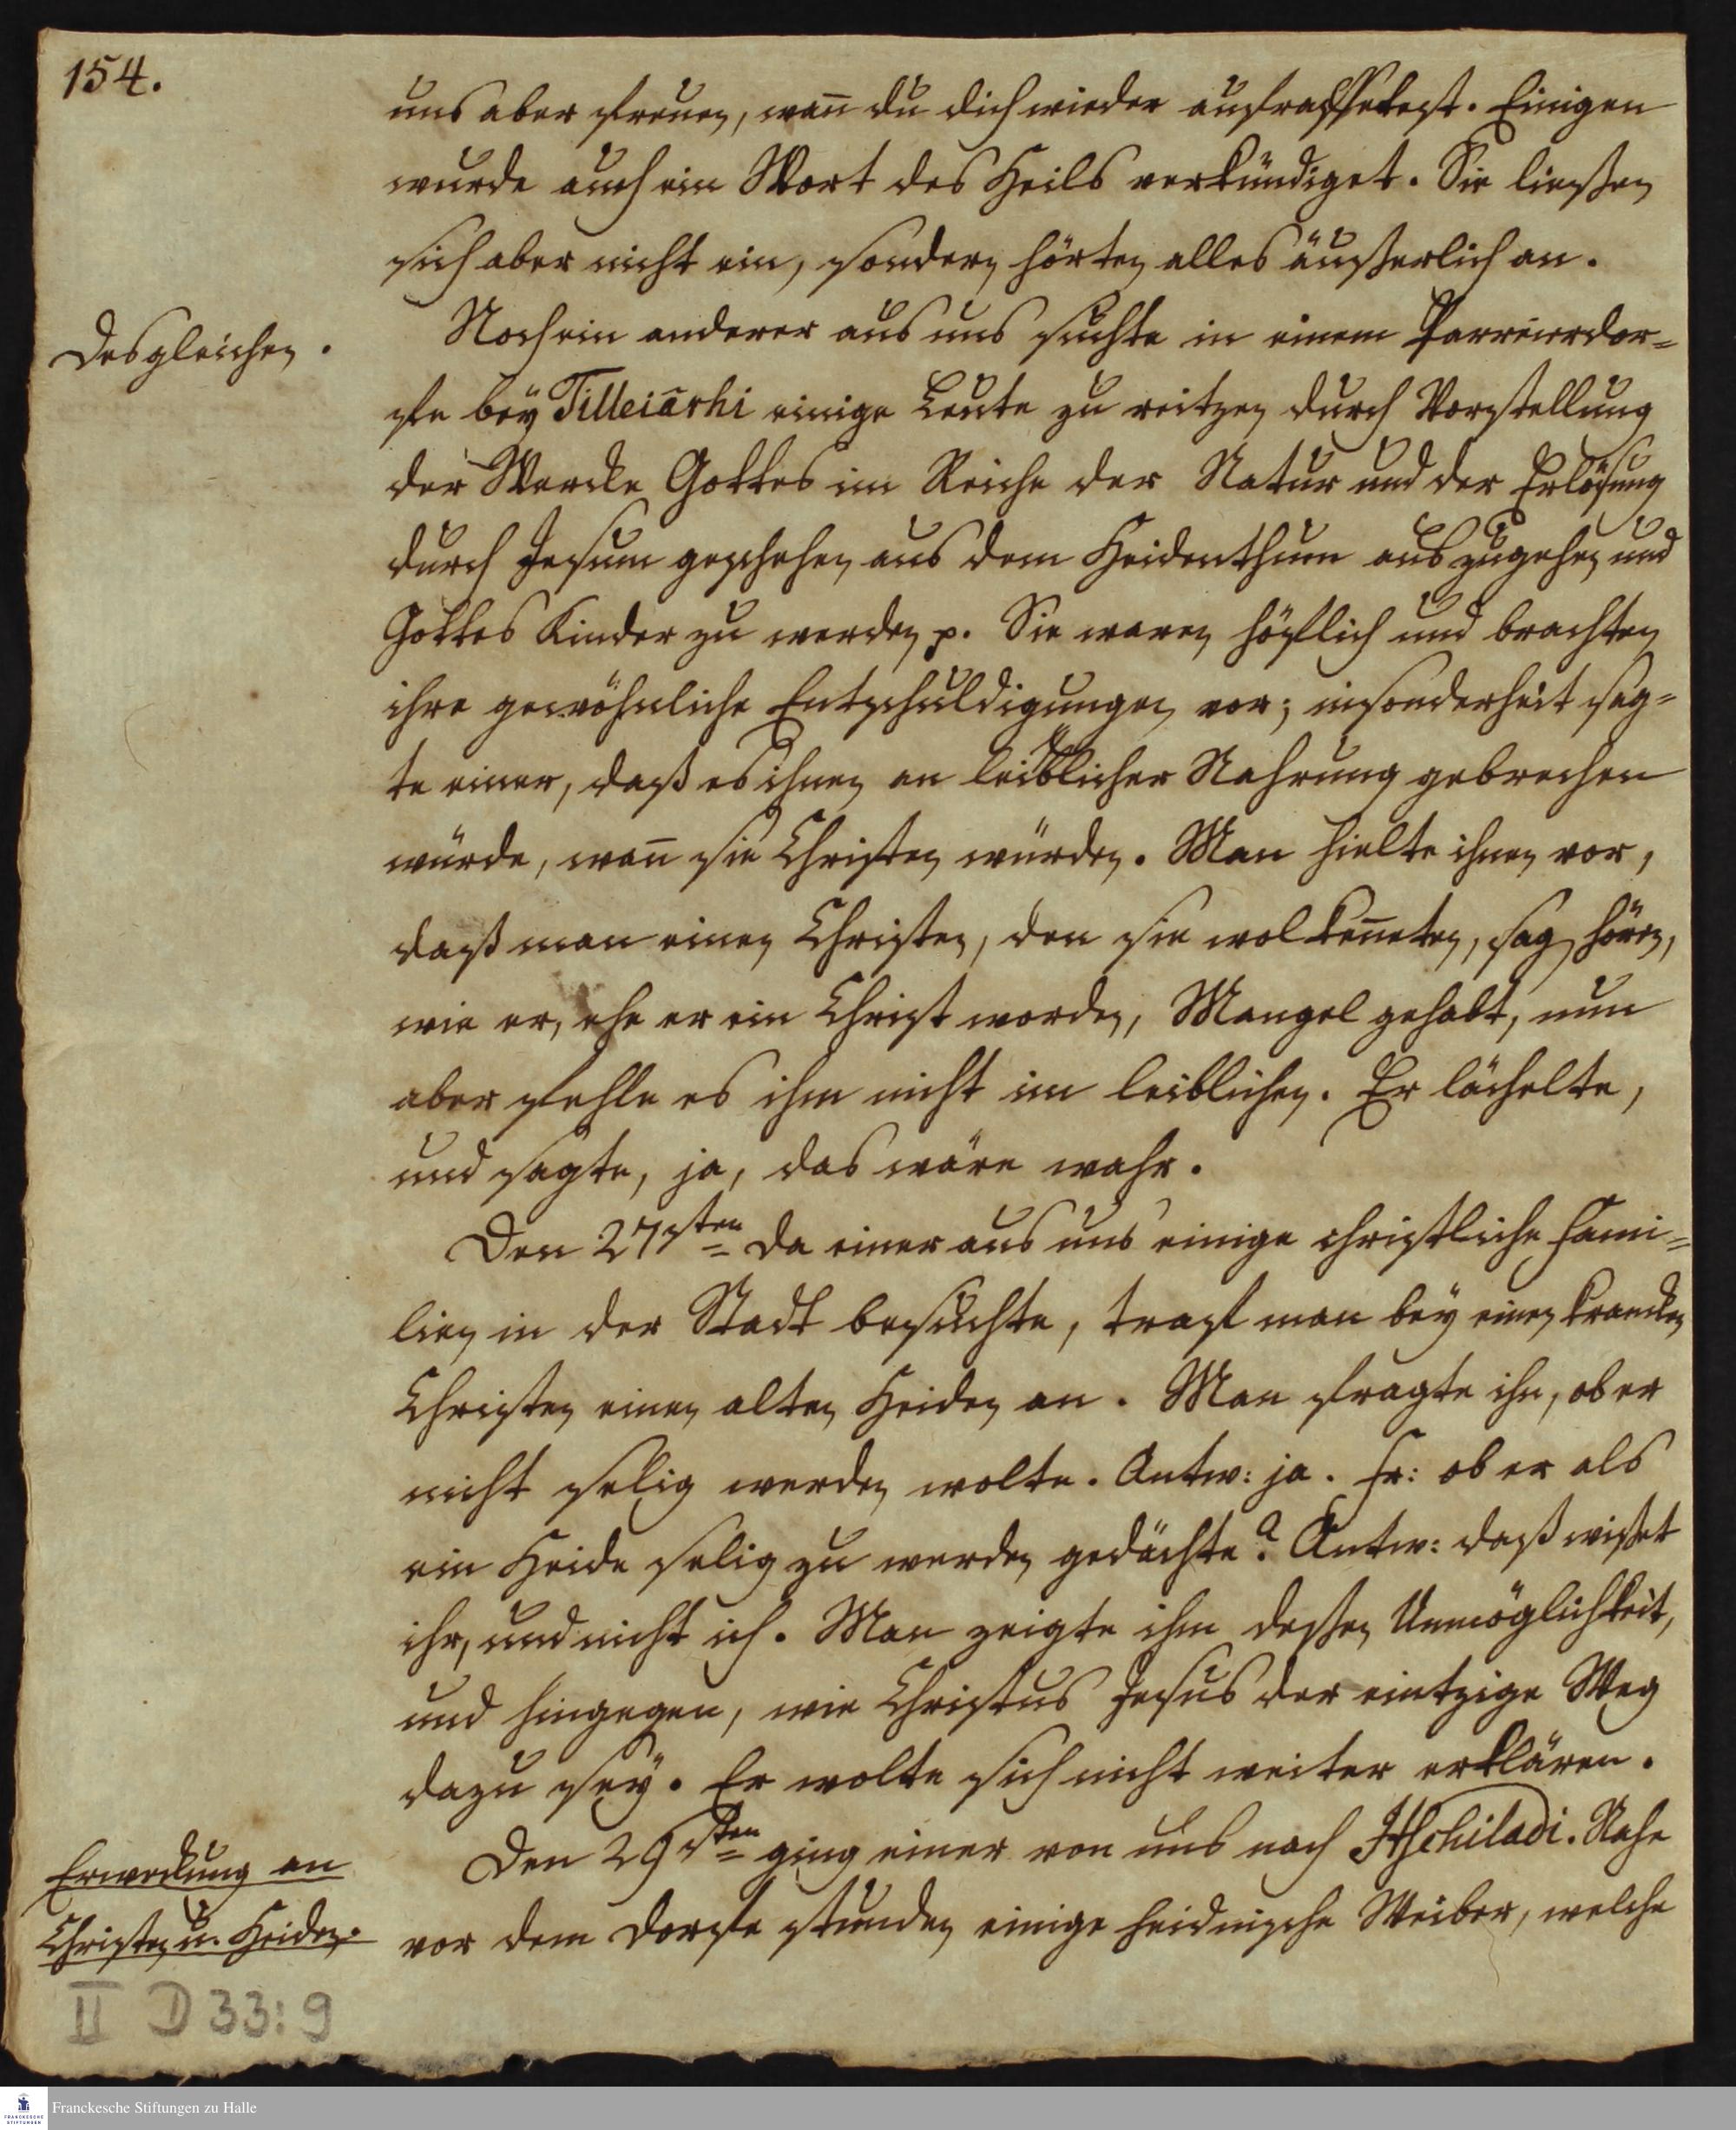 154.
uns aber freuen, wan̄ du dich wieder aufraffetest. Einigen
wurde auch ein Wort des Heils verkündiget. Sie ließen
sich aber nicht ein, sondern hörten alles äußerlich an.
Desgleichen.
Noch ein anderer aus uns suchte in einem Parreierdor=
fe bey Tilleiārhi einige Leute zu reitzen durch Vorstellung
der Wercke Gottes im Reiche der Natur und der Erlösung
durch Jesum geschehen aus dem Heidenthum auszugehen und
Gottes Kinder zu werden p. Sie waren höflich und brachten
ihre gewöhnliche Entschuldigungen vor; insonderheit sag=
te einer, daß es ihnen an leiblicher Nahrung gebrechen
würde, wan̄ sie Christen würden. Man hielte ihnen vor,
daß man einen Christen, den sie wol ken̄eten, sagen hören,
wie er, ehe er ein Christ worden, Mangel gehabt, nun
aber fehle es ihm nicht im leiblichen. Er lächelte,
und sagte, ja, das wäre wahr.
Den 27sten da einer aus uns einige christliche Fami=
lien in der Stadt besuchte, traf man bey einen krancken
Christen einen alten Heiden an. Man fragte ihn, ob er
nicht selig werden wolte. Antw: ja. Fr: ob er als
ein Heide selig zu werden gedächte? Antw: daß wißet
ihr, und nicht ich. Man zeigte ihm deßen Unmöglichkeit,
und hingegen, wie Christus Jesus der eintzige Weg
dazu sey. Er wolte sich nicht weiter erklären.
Erweckung an
Christen u. Heiden.
Den 29sten ging einer von uns nach Ittschiladi. Nahe
vor dem Dorfe stunden einige heidnische Weiber, welche
II D 33:9
FRANCKESCHE STIFTUNGEN
Franckesche Stiftungen zu Halle